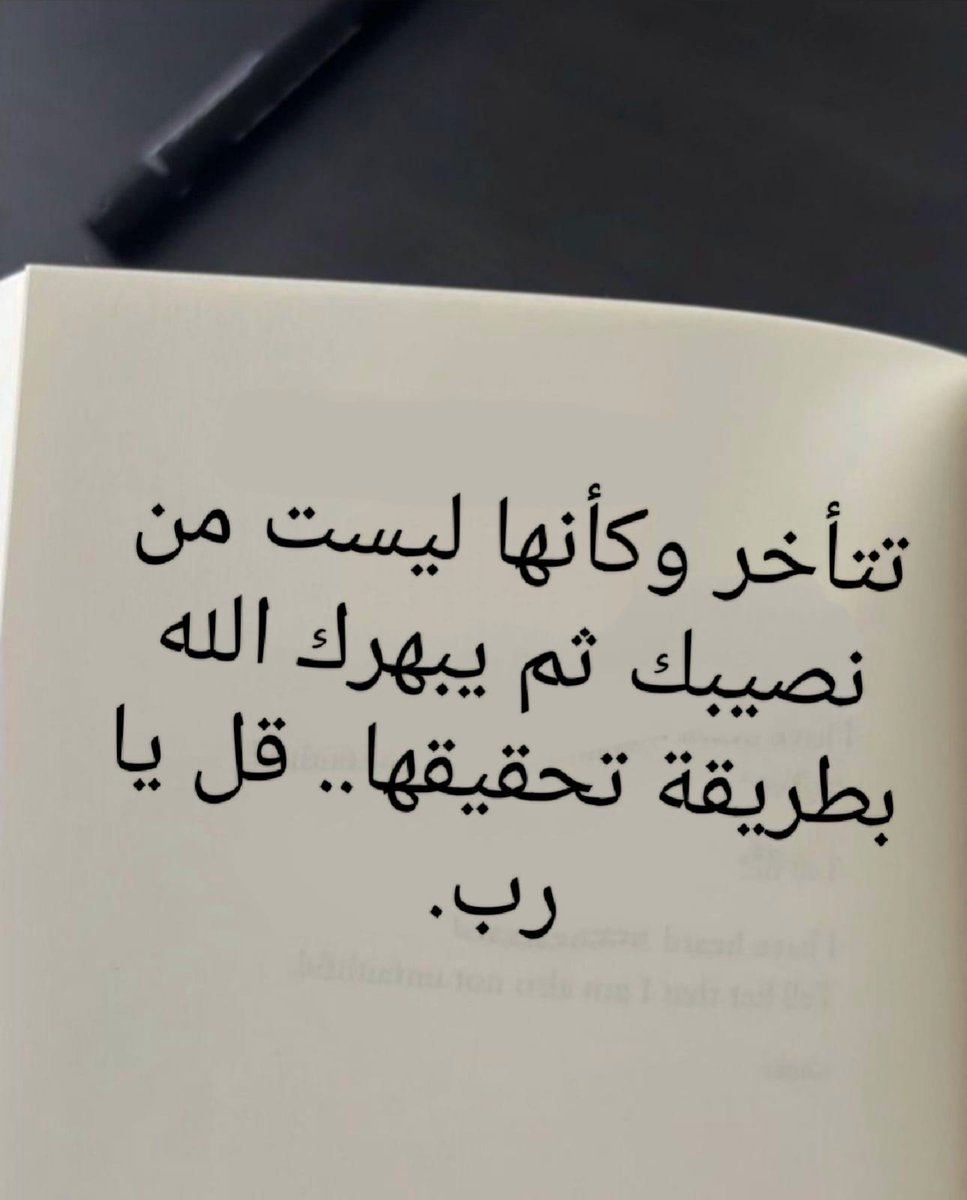 تتأخر وكأنها ليست من
نصيبك ثم يبهرك الله
بطريقة تحقيقها.. قل يا
رب.